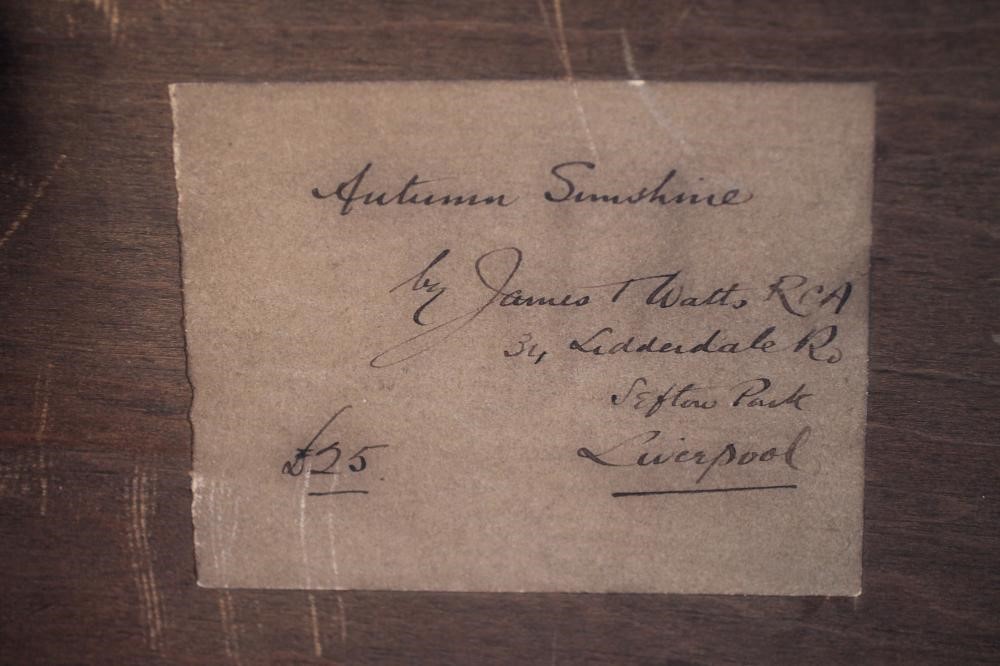 Autumn Sunshine
by James T Watts RCA
34 Lidderdale Rd
Sefton Park
£25.
Liverpool